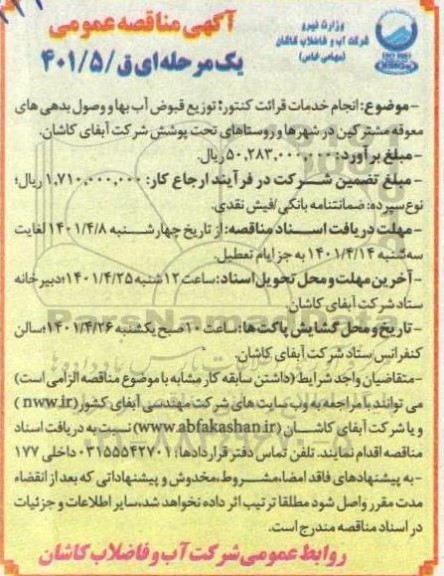 آگهی مناقصه عمومی
یک مرحله‌ای ق/۴۰۱/۵
وزارت نیرو
شرکت آب و فاضلاب کاشان
(سهامی خاص)
- موضوع: انجام خدمات قرائت کنتور؛ توزیع قبوض آب بها و وصول بدهی های
معوقه مشترکین در شهرها و روستاهای تحت پوشش شرکت آبفای کاشان.
- مبلغ برآورد: ۵۰,۲۸۳,۰۰۰,۰۰۰ ریال.
- مبلغ تضمین شرکت در فرآیند ارجاع کار: ۱,۷۱۰,۰۰۰,۰۰۰ ریال؛
نوع سپرده: ضمانتنامه بانکی/فیش نقدی.
- مهلت دریافت اسناد مناقصه: از تاریخ چهارشنبه ۱۴۰۱/۴/۸ لغایت
سه‌شنبه ۱۴۰۱/۴/۱۴ به جز ایام تعطیل.
- آخرین مهلت و محل تحویل اسناد: ساعت ۱۲ شنبه ۱۴۰۱/۴/۲۵؛ دبیرخانه
ستاد شرکت آبفای کاشان.
- تاریخ و محل گشایش پاکت‌ها: ساعت ۱۰ صبح یکشنبه ۱۴۰۱/۴/۲۶؛ سالن
کنفرانس ستاد شرکت آبفای کاشان.
- متقاضیان واجد شرایط (داشتن سابقه کار مشابه با موضوع مناقصه الزامی است)
می توانند با مراجعه به وب سایت های شرکت مهندسی آبفای کشور (nww.ir)
و یا شرکت آبفای کاشان (www.abfakashan.ir) نسبت به دریافت اسناد
مناقصه اقدام نمایند. تلفن تماس دفتر قراردادها: ۰۳۱۵۵۵۴۲۷۰۱ داخلی ۱۷۷
- به پیشنهادهای فاقد امضاء، مشروط، مخدوش و پیشنهاداتی که بعد از انقضاء
مدت مقرر واصل شود مطلقا ترتیب اثر داده نخواهد شد، سایر اطلاعات و جزئیات
در اسناد مناقصه مندرج است.
روابط عمومی شرکت آب و فاضلاب کاشان